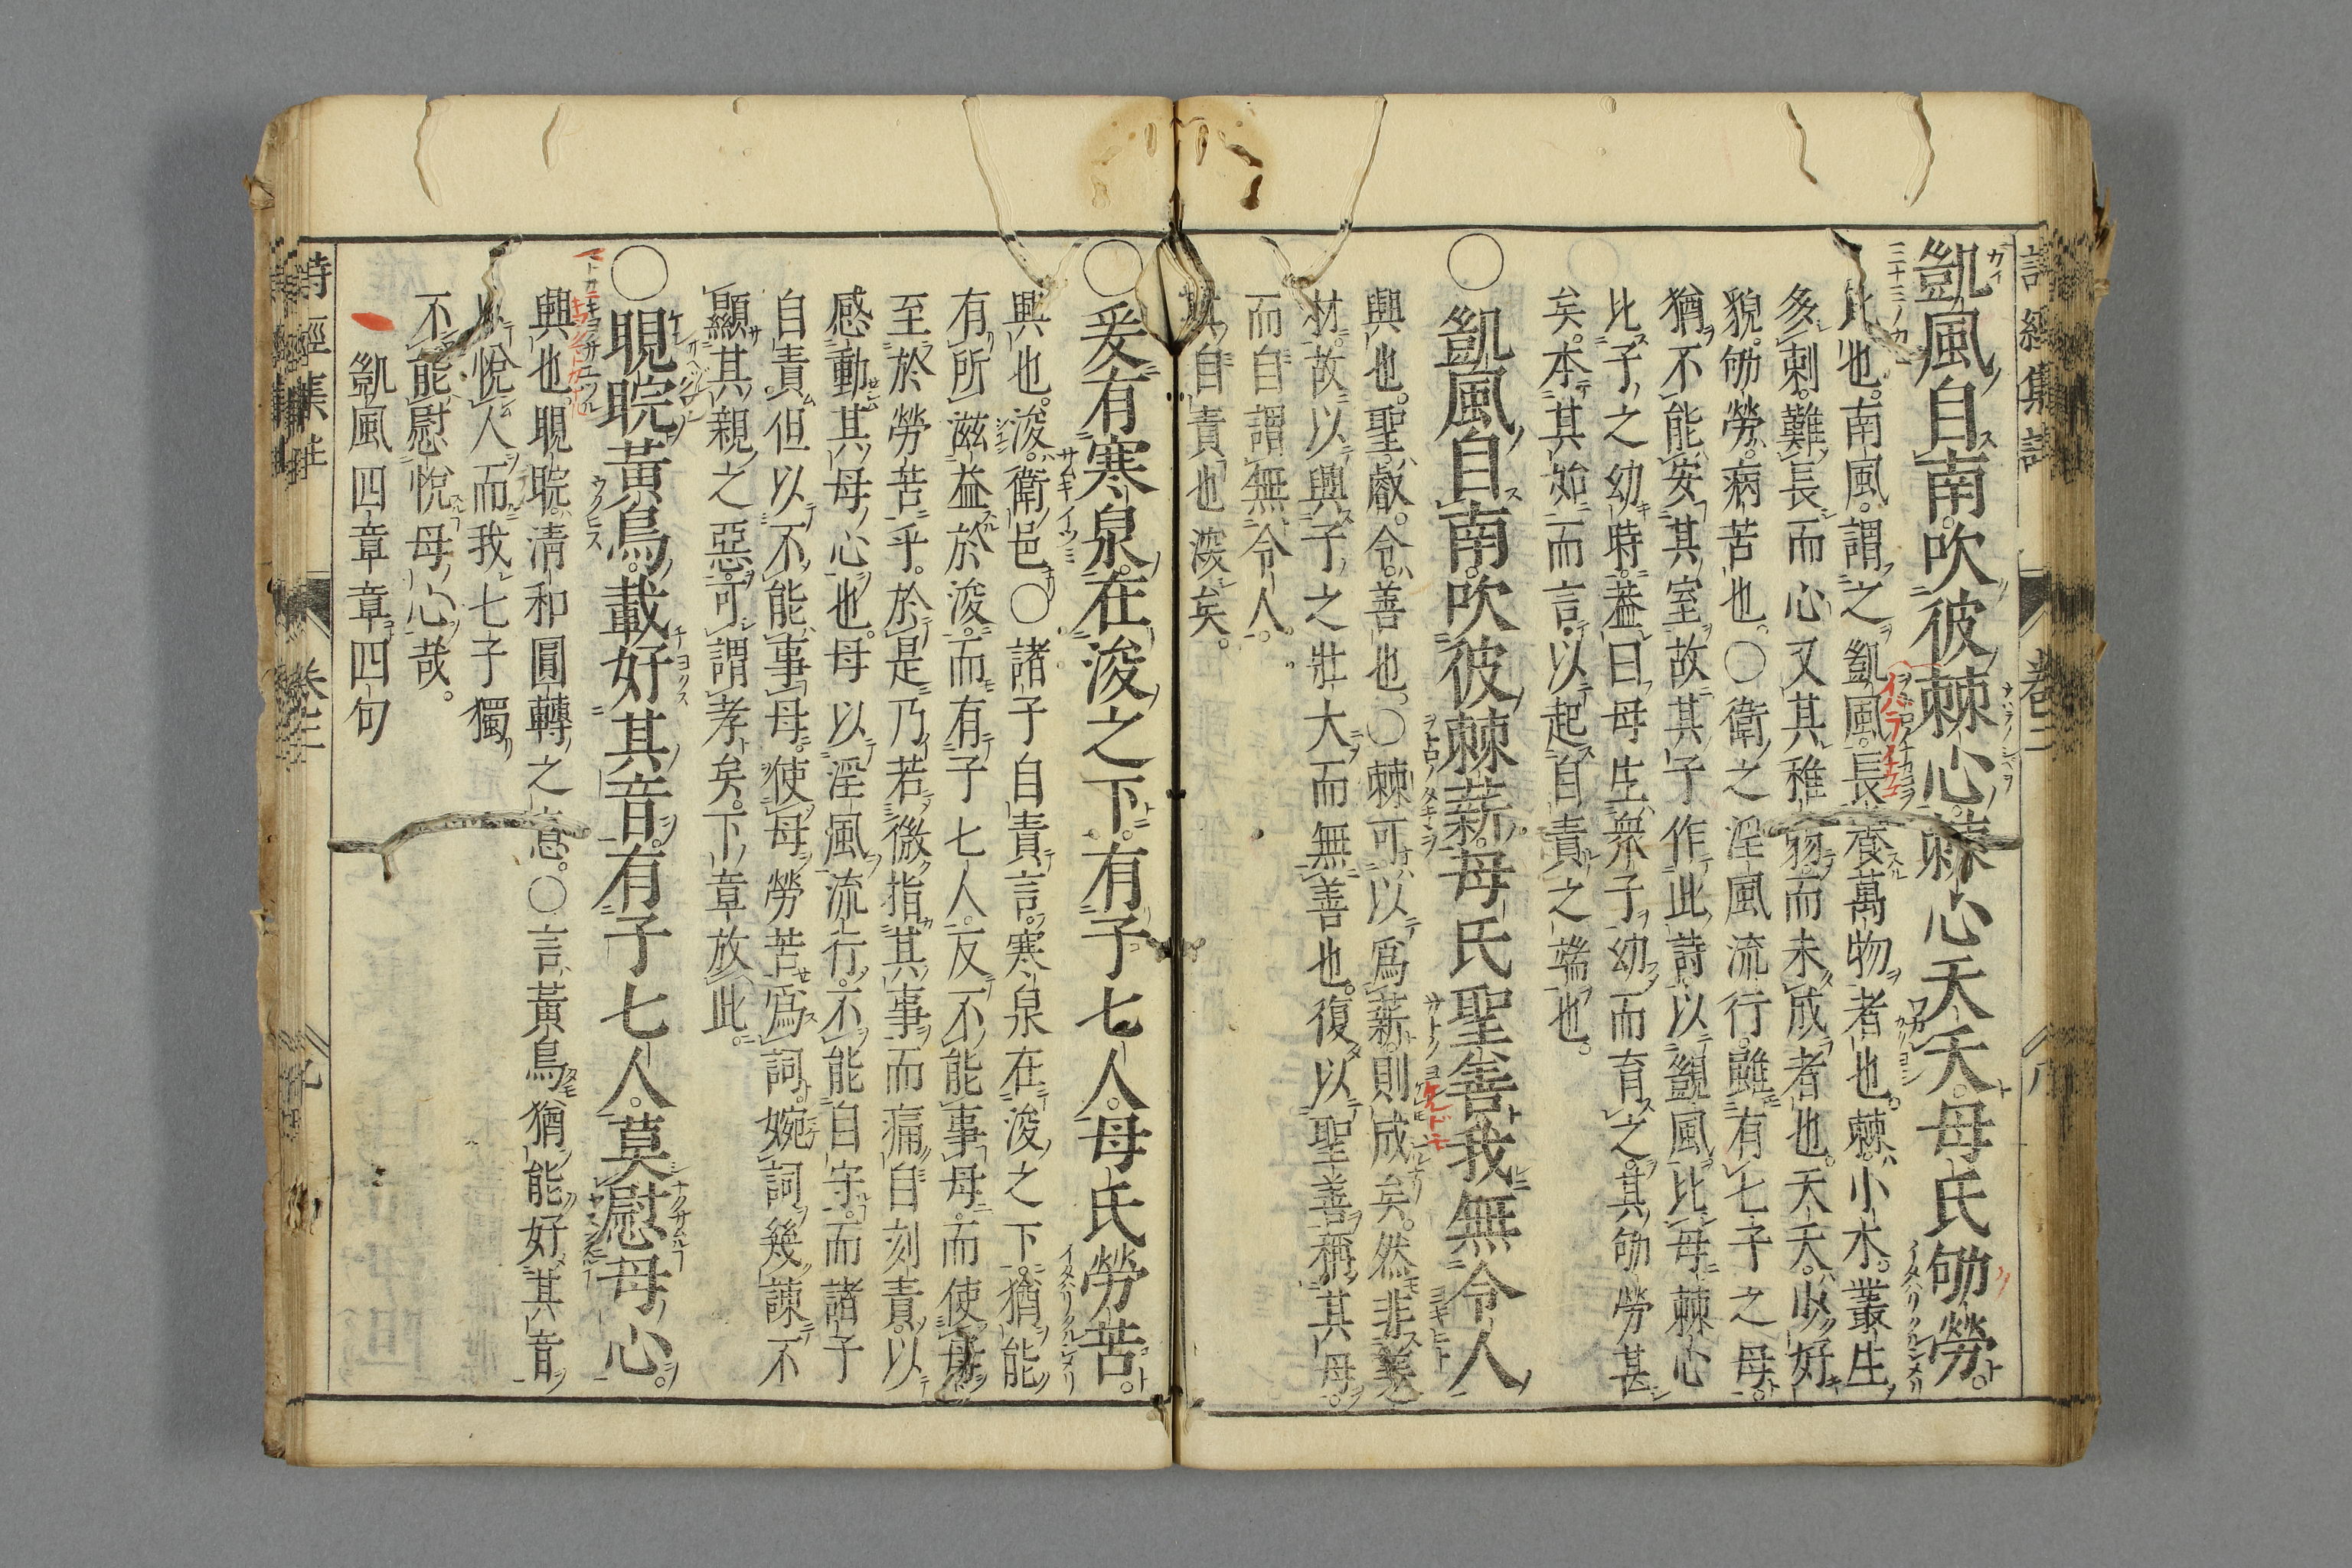 凱風自南吹彼棘心棘心夭夭母氏劬勞
比也南風謂之凱風長養萬物者也棘小木叢生
多刺難長而心又其稚弱而未成者也夭夭少好
貌劬勞病苦也○衛之淫風流行雖有七子之母
猶不能安其室故其子作此詩以凱風比母棘心
比子之幼時蓋曰母生衆子幼而育之其劬勞甚
矣本其始而言以起自責之端也
○凱風自南吹彼棘薪母氏聖善我無令人
興也聖叡令善也○棘可以爲薪則成矣然非美
材故以興子之壯大而無善也復以聖善稱其母
而自謂無令人
其自責也深矣
○爰有寒泉在浚之下有子七人母氏勞苦
興也浚衛邑○諸子自責言寒泉在浚之下猶能
有所滋益於浚而有子七人反不能事母而使母
至於勞苦乎於是乃若微指其事而痛自刻責以
感動其母心也母以淫風流行不能自守而諸子
自責但以不能事母使母勞苦爲詞婉詞幾諫不
顯其親之惡可謂孝矣下章放此
○睍睆黃鳥載好其音有子七人莫慰母心
興也睍睆清和圓轉之意○言黃鳥猶能好其音
以悅人而我七子獨
不能慰悅母心哉
凱風四章章四句
詩經集註 卷二 九